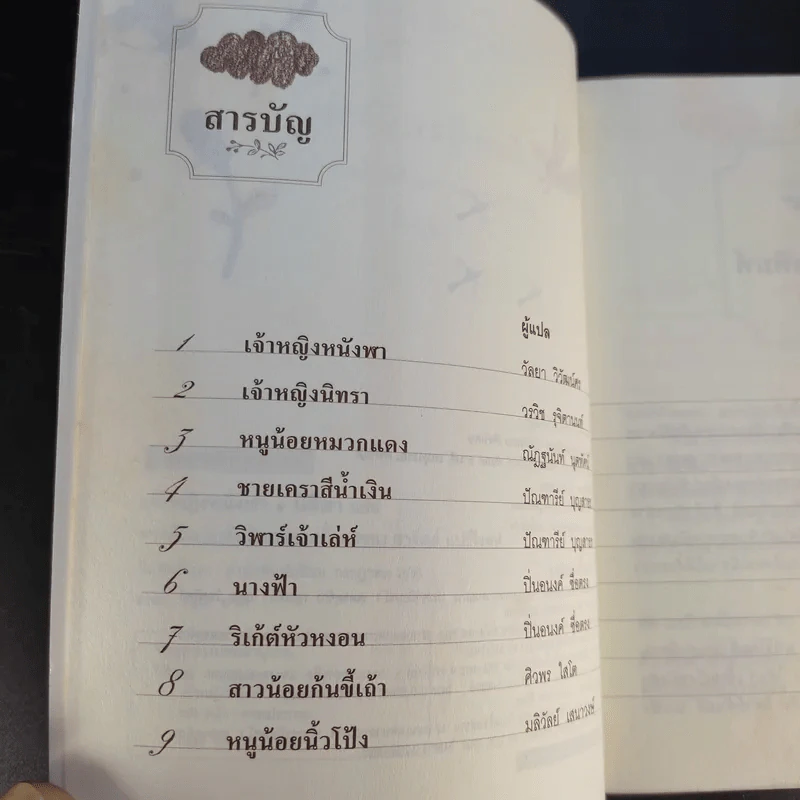 สารบัญ
ผู้แปล
1 เจ้าหญิงหนังพา วัลยา วิวัฒน์ศร
2 เจ้าหญิงนิทรา วรวิช รุจิตานนท์
3 หนูน้อยหมวกแดง ณัฏฐนันท์
4 ชายเคราสีน้ำเงิน ปัณฑารีย์
5 วิพาร์เจ้าเล่ห์ ปัณฑารีย์
6 นางฟ้า ปิ่นอนงค์ ซื่อตรง
7 ริเก้ต์หัวหงอน ปิ่นอนงค์ ซื่อตรง
8 สาวน้อยก้นขี้เถ้า ศิวพร ใสโต
9 หนูน้อยนิ้วโป้ง มลิวัลย์ เสนาวงษ์